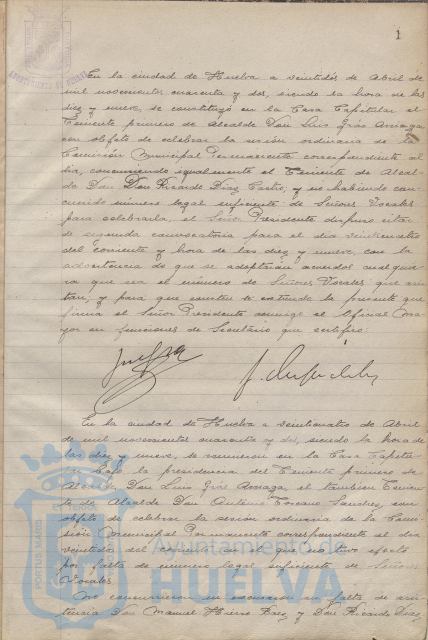 1
En la ciudad de Huelva a veintidós de Abril de
mil novecientos cuarenta y dos, siendo la hora de las
diez y nueve, se constituyó en la Casa Capitular el
Teniente primero de Alcalde Don Luis
con objeto de celebrar la sesión ordinaria de la
Comisión Municipal Permanente correspondiente al
día, concurriendo igualmente el Teniente de Alcal-
de Don Ricardo Díaz Castro, y no habiendo con-
currido número legal suficiente de Señores Vocales
para celebrarla, el Señor Presidente dispuso citar
de segunda convocatoria para el día veinticuatro
del corriente y hora de las diez y nueve, con la
advertencia de que se adoptarán acuerdos cualquie-
ra que sea el número de Señores Vocales que asis-
tan; y para que conste se extiende la presente que
firma el Señor Presidente conmigo el Oficial Ma-
yor en funciones de Secretario que certifico:
En la ciudad de Huelva a veinticuatro de Abril
de mil novecientos cuarenta y dos, siendo la hora de
las diez y nueve, se reunieron en la Casa Capitu-
lar bajo la presidencia del Teniente primero de
Alcalde, Don Luis el también Tenien-
te de Alcalde Don Antonio Toscano Sanchez, con
objeto de celebrar la sesión ordinaria de la Comi-
sión Municipal Permanente correspondiente al día
veintidós del corriente en el que no tuvo efecto
por falta de número legal suficiente de Señores
Vocales.
No concurrieron
tencia Don Manuel Hierro y Don Ricardo Díaz
Ayuntamiento de
HUELVA
PORTUS MARIS